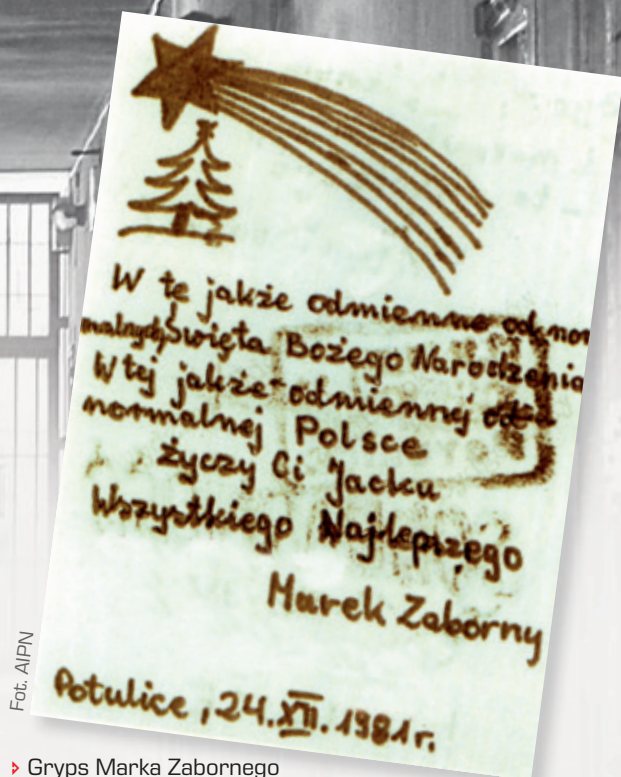 W te jakże odmienne od nor
malnych Święta Bożego Narodzenia
W tej jakże odmiennej od
normalnej Polsce
życzy Ci Jacku
Wszystkiego Najlepszego
Marek Zaborny
Potulice, 24.XII.1981r.
Fot. AIPN
Gryps Marka Zabornego